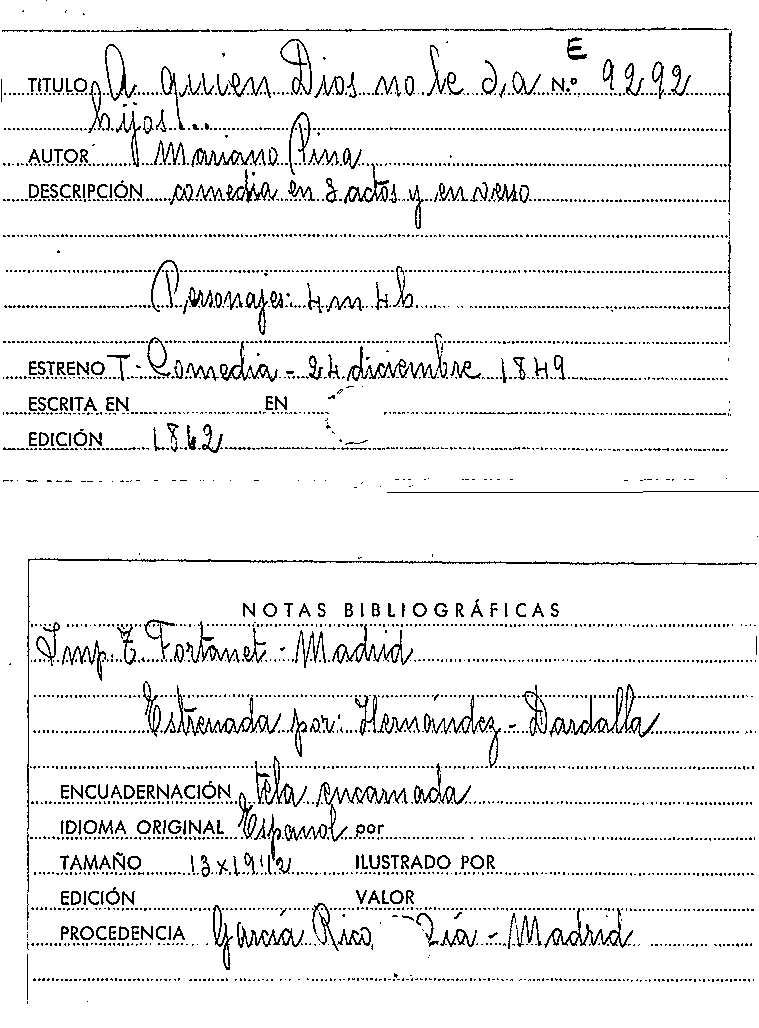 E
TITULO A quien Dios no le da N.º 9292
hijos!..
AUTOR Mariano Pina
DESCRIPCIÓN comedia en 3 actos y en verso
Personajes: 4 m 4 h
ESTRENO T. Comedia - 24 diciembre 1849
ESCRITA EN EN
EDICIÓN 1862
NOTAS BIBLIOGRÁFICAS
Imp. T. Fortanet - Madrid
Estrenada por: Hernández - Dardalla
ENCUADERNACIÓN tela encarnada
IDIOMA ORIGINAL Español por
TAMAÑO 13x19'12 ILUSTRADO POR
EDICIÓN VALOR
PROCEDENCIA García Rico - Madrid